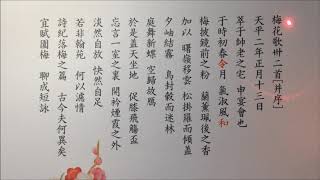 梅花歌卅二首［并序］
天平二年正月十三日
萃于帥老之宅 申宴會也
于時初春令月 氣淑風和
梅披鏡前之粉 蘭薫珮後之香
加以 曙嶺移雲 松掛羅而傾盖
夕岫結霧 鳥封縠而迷林
庭舞新蝶 空歸故鴈
於是盖天坐地 促膝飛觴
忘言一室之裏 開衿煙霞之外
淡然自放 快然自足
若非翰苑 何以攄情
詩紀落梅之篇 古今夫何異矣
宜賦園梅 聊成短詠